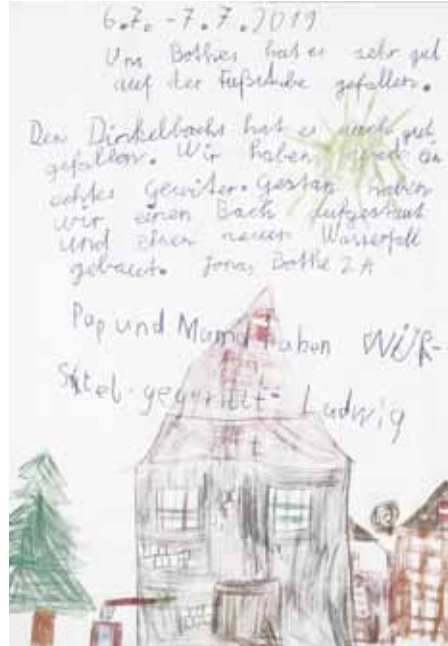 6.7. - 7.7.2019
Uns Bothes hat es sehr gut
auf der Fußstube gefallen.
Den Dinkelbachs hat es auch gut
gefallen. Wir haben ein
echtes Gewiter. Gestan haben
wir einen Bach aufgestaut
und einen neuen Wasserfall
gebaut. Jonas Bothe 2A
Pap und Mama haben WÜR-
Stel gegrillt Ludwig